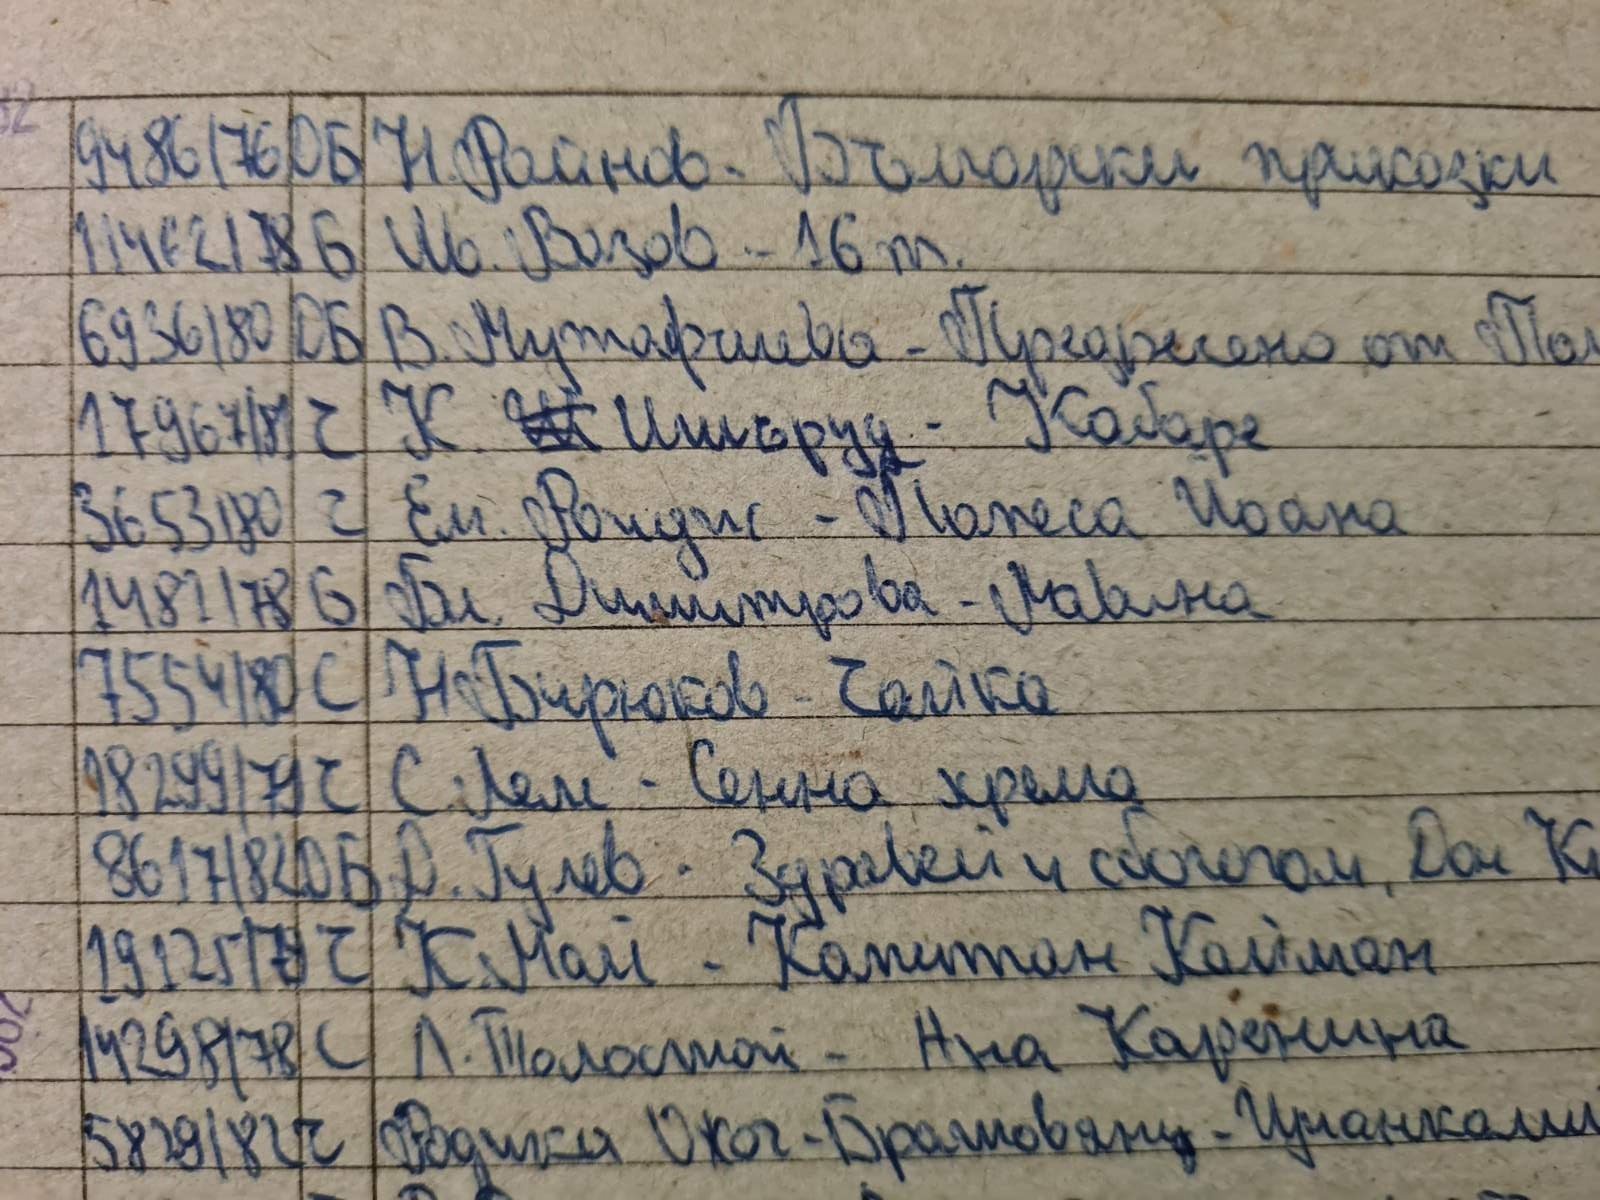 9486/76 ОБ Н. Райнов - Български приказки
/78 Б Ив. Вазов - 16 т.
6936/80 ОБ В. Мутафчиева - Предречено от
17967/81 Ч К. Ишъруд - Кабаре
3653/80 Ч Ем. Роидис - Папеса Йоана
1482/78 Б Бл. Димитрова - Лавина
7554/80 С Н. Бирюков - Чайка
18299/79 Ч С. Лем - Сенна хрема
8617/82 ОБ Д. Гулев - Здравей и сбогом, Дон
19125/79 Ч К. Май - Капитан Кайман
14298/78 С Л. Толостой - Ана Каренина
5829/82 Ч Родика